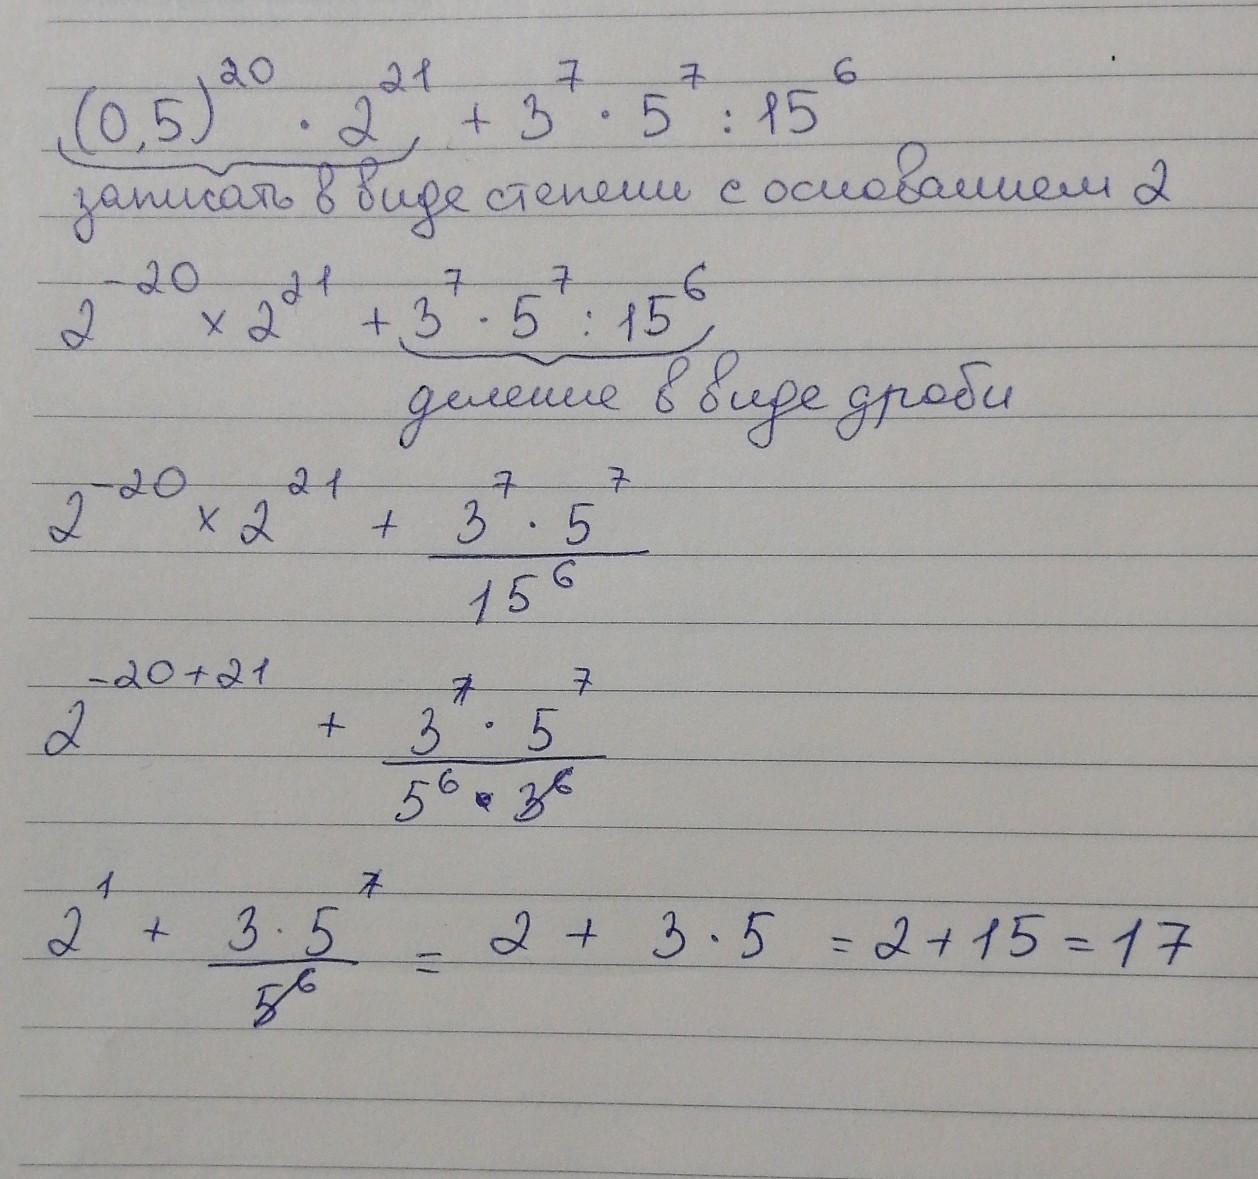 (0,5)²⁰ · 2²¹ + 3⁷ · 5⁷ : 15⁶
записать в виде степени с основанием 2
2⁻²⁰ × 2²¹ + 3⁷ · 5⁷ : 15⁶
деление в виде дроби
2⁻²⁰ × 2²¹ + 3⁷ · 5⁷
15⁶
2⁻²⁰⁺²¹ + 3⁷ · 5⁷
5⁶ · 3⁶
2¹ + 3 · 5⁷ = 2 + 3 · 5 = 2 + 15 = 17
5⁶